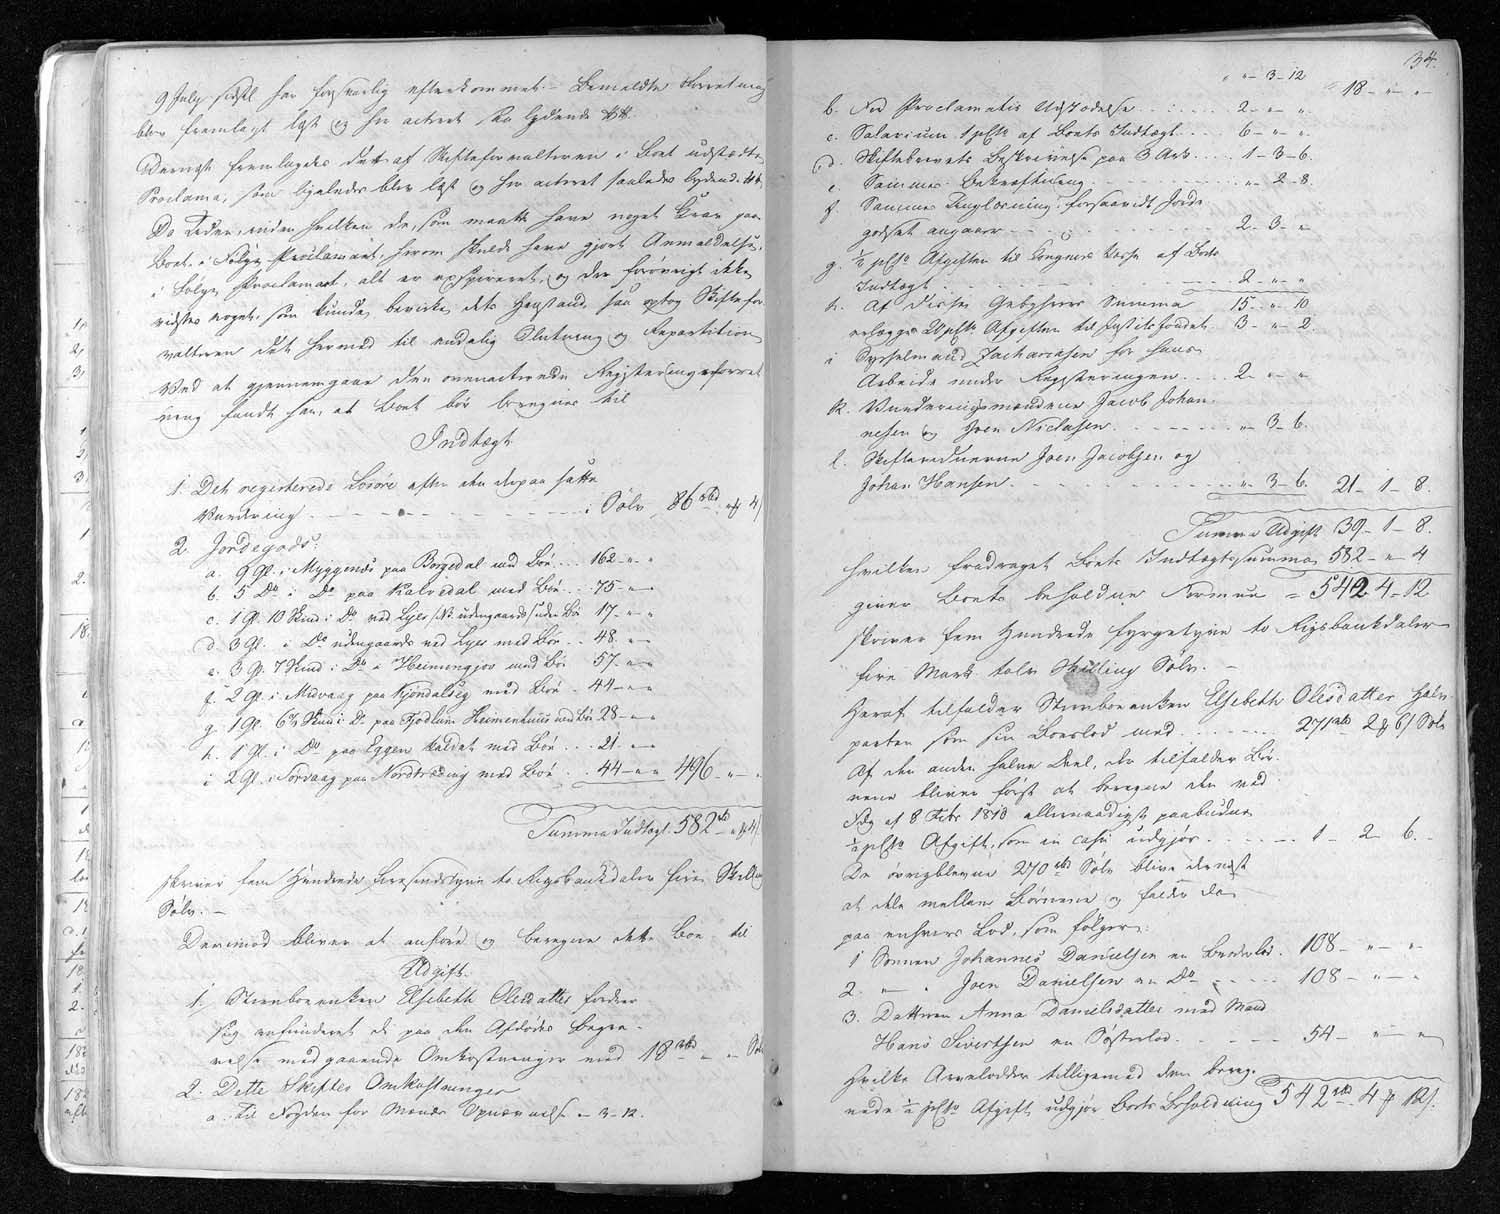 9 July sidstl har forsvarlig efterkommet. – Bemeldte Forretning
blev fremlagt læst og her acteret saa lydende
Dernæst fremlagdes det af Skifteforvalteren i Boet udstædte
Proclama, som ligeledes blev læst og her acteret saaledes lydende
Da Tiden, inden hvilken de, som maatte have noget Krav paa
Boet, i Følge Proclamaet, herom skulde have gjort Anmeldelse,
i Følge Proclamaet, alt er exspireret, og der forøvrigt ikke
vidstes noget, som kunde bevirke dets Henstand, saa optog Skiftefor
valteren det hermed til endelig Slutning og Repartition
Ved at gjennemgaae den ovenacterede Registeringsforret
ning fandt han, at Boet bør beregnes til
Indtægt
1. Det registerede Løsøre efter den derpaa satte
Vurdering - - - - i Sølv 86 rbd " 4
2. Jordegods:
a. 9 Gl. i Myggenæs paa Borgedal med Bøe ... 162 – " "
b. 5 Do i Do paa Kalvedal med Bøe .. 75 – " –
c. 1 Gl 10 Skind i Do ved Lyes NB. udengaards uden Bøe 17 – " "
d. 3 Gl. i Do udengaards ved Lyes med Bøe .. 48. " –
e. 3 G. 7 Skind i Do i Heimengjov med Bøe 57. – " –
f. 2 Gl. i Midvaag paa Kjondalseg med Bøe . 44 – " –
g. 1 Gl. 6⅔ Skind i Do paa Fjodlum Heimentuus med Bøe 28 – " –
h. 1 Gl. i Do paa Eggen kaldet med Bøe ... 21. " –
i 2 Gl. i Sørvaag paa Nordtræding med Bøe .. 44 – " " 496 – " –
Summa Indtægt 582 rbd " 4
skriver fem Hundrede firesindstyve to Rigsbankdaler fire Skilling
Sølv. –
Derimod bliver at anføre og beregne dette Boe til
Udgift.
1. Stervboenken Elsebeth Olesdatter fordrer
sig refunderet de paa den Afdødes Begra-
velse medgaaende Omkostninger med 18 rbd " – " Sølv
2. Dette Skiftes Omkostninger
a. Til Fogden for Mænds Opnævnelse – 3 – 12.
34.
" " – 3 – 12
18 – " – "
b. For Proclamatis Udstædelse . . . . . 2 – " – "
c. Salarium 1 pCto af Boets Indtægt . . . . 6 – " – "
d. Skiftebrevets Beskrivelse paa 3 Ark . . . . 1 – 3 – 6.
e. Sammes Bekræftning . . . . . . " – 2 – 8.
f. Sammes Tinglæsning, forsaavidt Jorde
godset angaaer . . . . . . 2 – 3 – "
g. ½ pCto Afgiften til Kongens Kasse af Boets
Indtægt . . . . . . 2 – " – "
h. Af disse Gebyhrers Summa 15 – " – 10
erlægges 20 pCto Afgiften til Justitsfondet 3 – " – 2
i Sysselmand Zachariasen for hans
Arbeide under Registeringen . . . . 2 – " – "
k. Vurderingsmændene Jacob Johan
nesen og Joen Niclasen . . . . . . " – 3 – 6.
l. Skiftevidnerne Joen Jacobsen og
Johan Hansen . . . . . . " – 3 – 6. 21 – 1 – 8.
Summa Udgift 39 – 1 – 8.
Hvilken fradraget Boets Indtægtssumma 582 – " – 4
giver Boets beholdne Formue = 542 – 4 – 12
skriver fem Hundrede fyrgetyve to Rigsbankdaler
fire Mark tolv Skilling Sølv. –
Heraf tilfalder Stervboenken Elsebeth Olesdatter Halv-
parten som sin Boeslod med . . . . . 271 rbd 2 6 Sølv
Af den anden halve Deel, der tilfalder Bør-
nene bliver først at beregne den ved
Fdg af 8 Febr 1810 allernaadigst paabudne
½ pCto Afgift, som in casu udgjør . . . . . 1 – 2 – 6.
De øvrigblevne 270 rbd Sølv blive dernæst
at dele mellem Børnene og falder da
paa enhvers Lod, som følger:
1 Sønnen Johannes Danielsen en Broderlod. 108 – " – "
2. " – " Joen Danielsen en Do . . . . . 108 – " – "
3. Datteren Anna Danielsdatter med Mand
Hans Sivertsen en Søsterlod. . . . . . 54 – " – "
Hvilke Arvelodder tilligemed den bereg-
nede ½ pCto Afgift udgjør Boets Beholdning 542 rbd 4 12